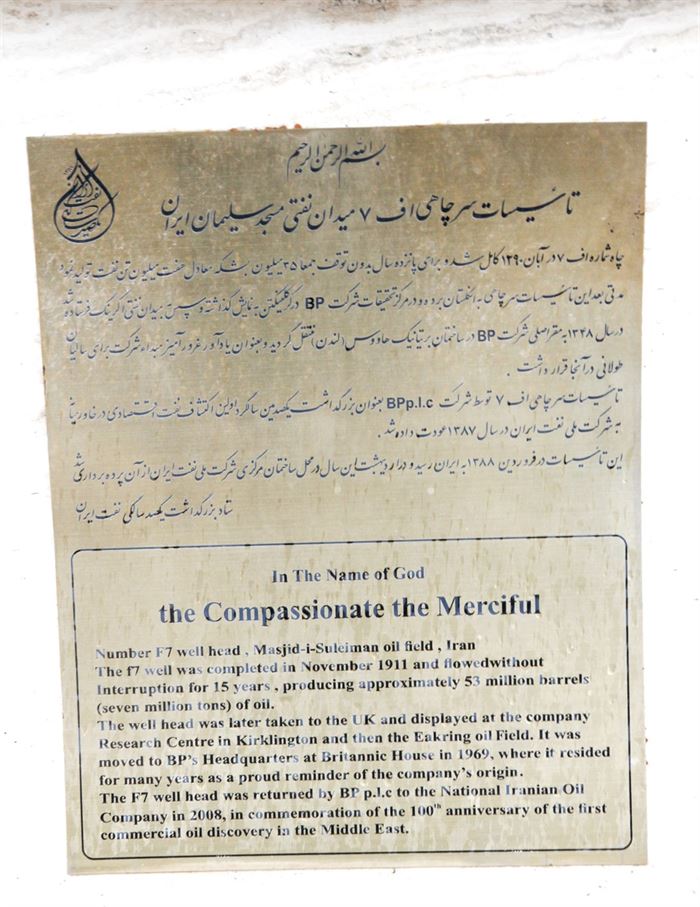 بسم الله الرحمن الرحیم
تأسیسات سرچاهی اف ۷ میدان نفتی مسجد سلیمان ایران
چاه شماره اف ۷ در آبان ۱۲۹۰ کامل شد و برای پانزده سال بدون توقف جمعا ۳۵ میلیون بشکه معادل هفت میلیون تن نفت تولید نمود
مدتی بعد این تأسیسات سرچاهی به انگلستان برده و در مرکز تحقیقات شرکت BP در کرکلینگتن به نمایش گذاشته و سپس به میدان نفتی اکرینگ فرستاده شد
در سال ۱۳۴۸ به مقر اصلی شرکت BP در ساختمان بریتانیک هاووس (لندن) منتقل گردید و بعنوان یادآور غرور آمیز مبداء شرکت برای سالیان
طولانی در آنجا قرار داشت .
تأسیسات سرچاهی اف ۷ توسط شرکت BPp.l.c بعنوان بزرگداشت یکصدمین سالگرد اولین اکتشاف نفت اقتصادی در خاورمیانه
به شرکت ملی نفت ایران در سال ۱۳۸۷ عودت داده شد .
این تأسیسات در فروردین ۱۳۸۸ به ایران رسید و در اردیبهشت این سال در محل ساختمان مرکزی شرکت ملی نفت ایران از آن پرده برداری شد
ستاد بزرگداشت یکصد سالگی نفت ایران
In The Name of God
the Compassionate the Merciful
Number F7 well head , Masjid-i-Suleiman oil field , Iran
The f7 well was completed in November 1911 and flowedwithout
Interruption for 15 years , producing approximately 53 million barrels
(seven million tons) of oil.
The well head was later taken to the UK and displayed at the company
Research Centre in Kirklington and then the Eakring oil Field. It was
moved to BP's Headquarters at Britannic House in 1969, where it resided
for many years as a proud reminder of the company's origin.
The F7 well head was returned by BP p.l.c to the National Iranian Oil
Company in 2008, in commemoration of the 100th anniversary of the first
commercial oil discovery in the Middle East.